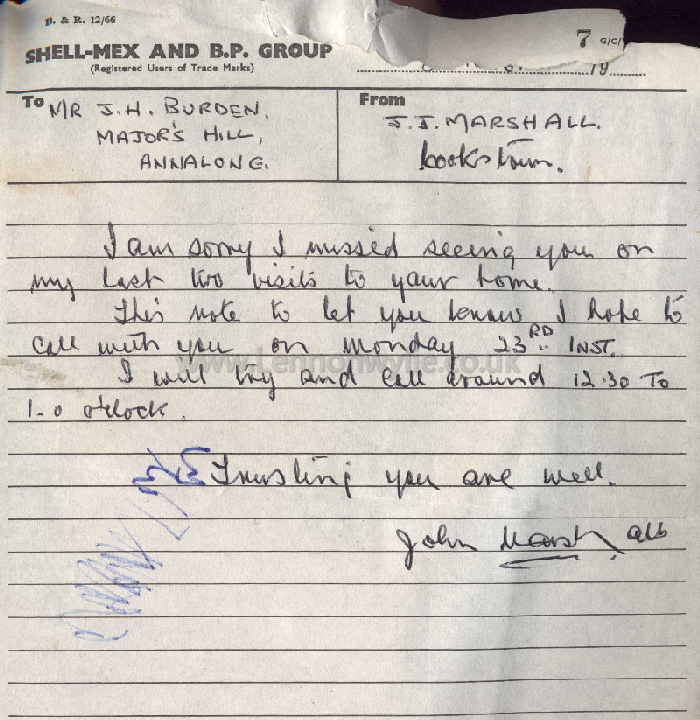 B. & R. 12/66
7 G/C/
SHELL-MEX AND B.P. GROUP
(Registered Users of Trade Marks)
19
To MR J.H. BURDEN,
MAJOR'S HILL,
ANNALONG.
From
J.J. MARSHALL.
Cookstown.
I am sorry I missed seeing you on
my last two visits to your home.
This note to let you know I hope to
call with you on Monday 23RD INST.
www.Lennonwylie.co.uk
I will try and call around 12.30 TO
1-0 o'clock.
Trusting you are well.
John Marshall